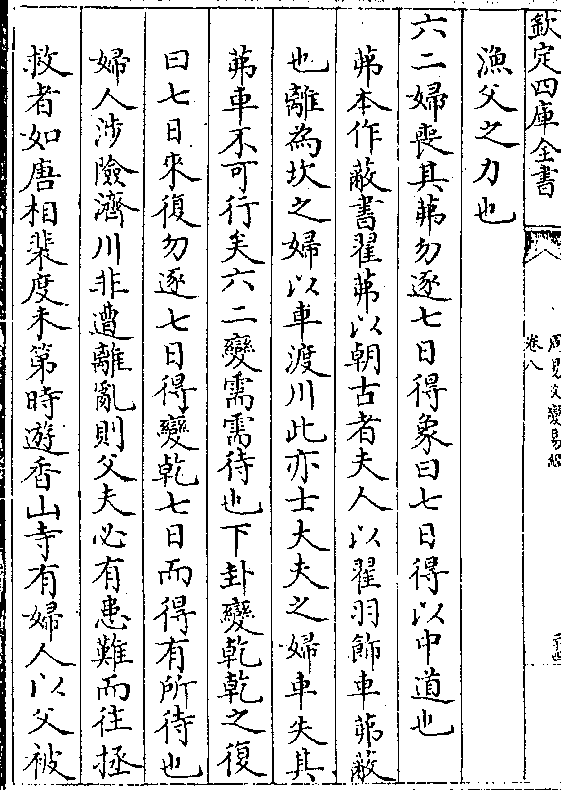 欽定四庫全書
周易爻變易縕
卷八
漁父之力也
六二婦喪其茀勿逐七日得象曰七日得以中道也
茀本作蔽書翟茀以朝古者夫人以翟羽飾車茀蔽
也離為坎之婦以車渡川此亦士大夫之婦車失其
茀車不可行矣六二變需需待也下卦變乾乾之復
曰七日來復勿逐七日得變乾七日而得有所待也
婦人涉險濟川非遭離亂則父夫必有患難而往拯
救者如唐相裴度未第時遊香山寺有婦人以父被